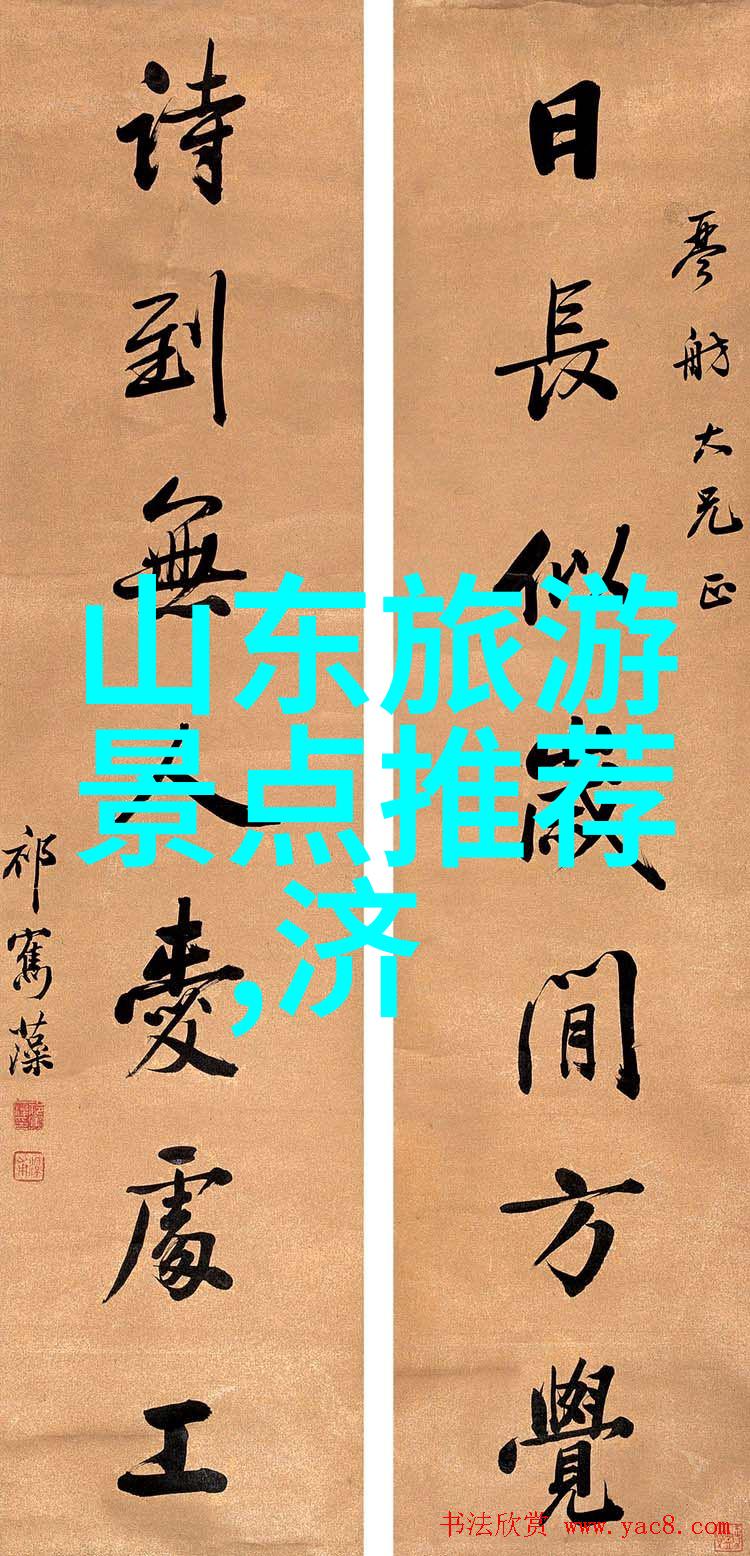 日長似歲閒方覺
琴舫大兄正
詩到無人愛處工
祁寯藻
山东旅游
景点推荐
,济
书法欣赏 www.yac8.com